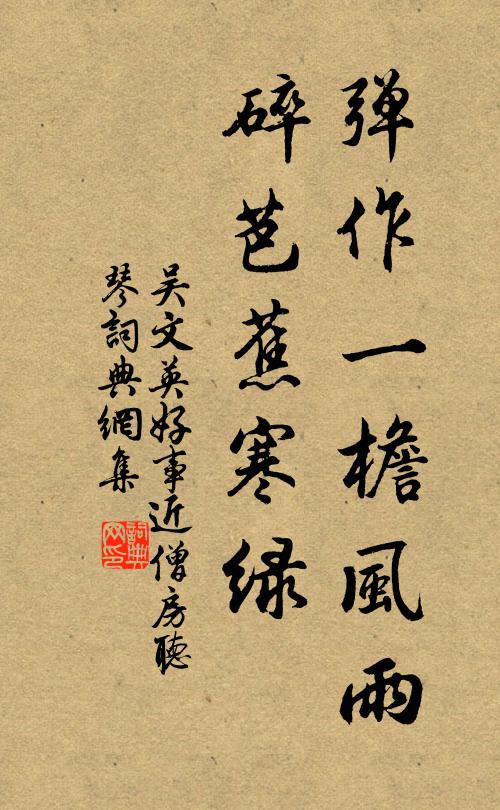 弹作一檐風雨
碎芭蕉寒绿
吴文英好事近僧房聴
琴詞典網集
詞典
网印